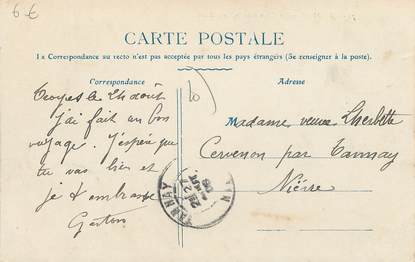 6 €
CARTE POSTALE
La Correspondance au recto n'est pas acceptée par tous les pays étrangers (Se renseigner à la poste).
Correspondance
Troyes le 24 août
j'ai fait un bon
voyage. J'espère que
tu vas bien et
je t embrasse
Gaston
Adresse
Madame veuve Lherbette
Cervenon par Tannay
Nièvre
TANNAY